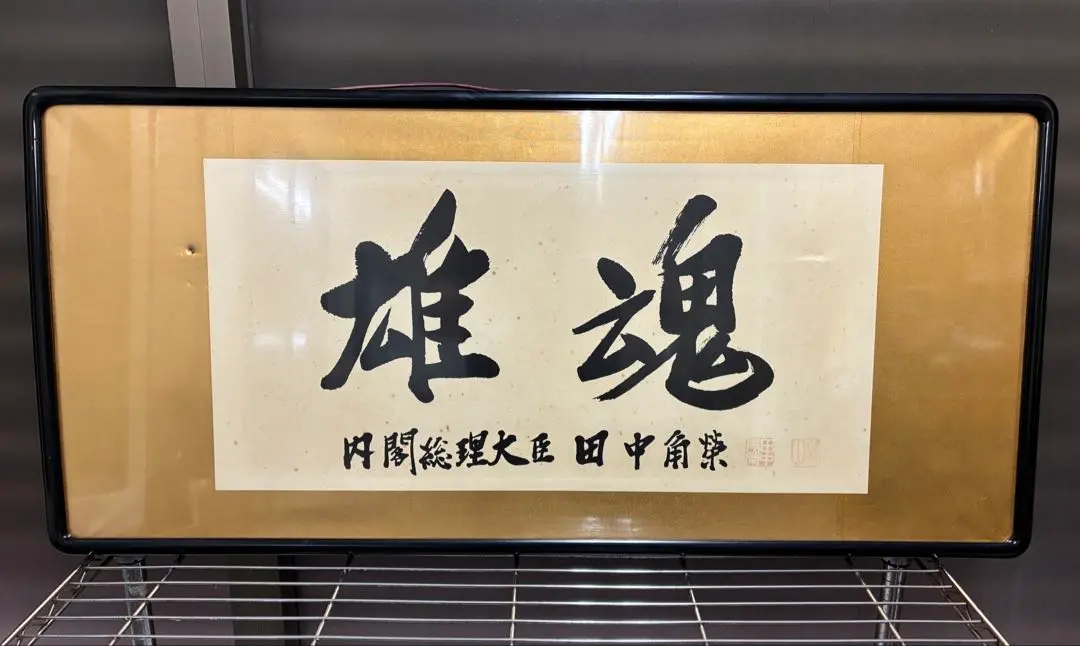 雄魂
内閣総理大臣 田中角榮